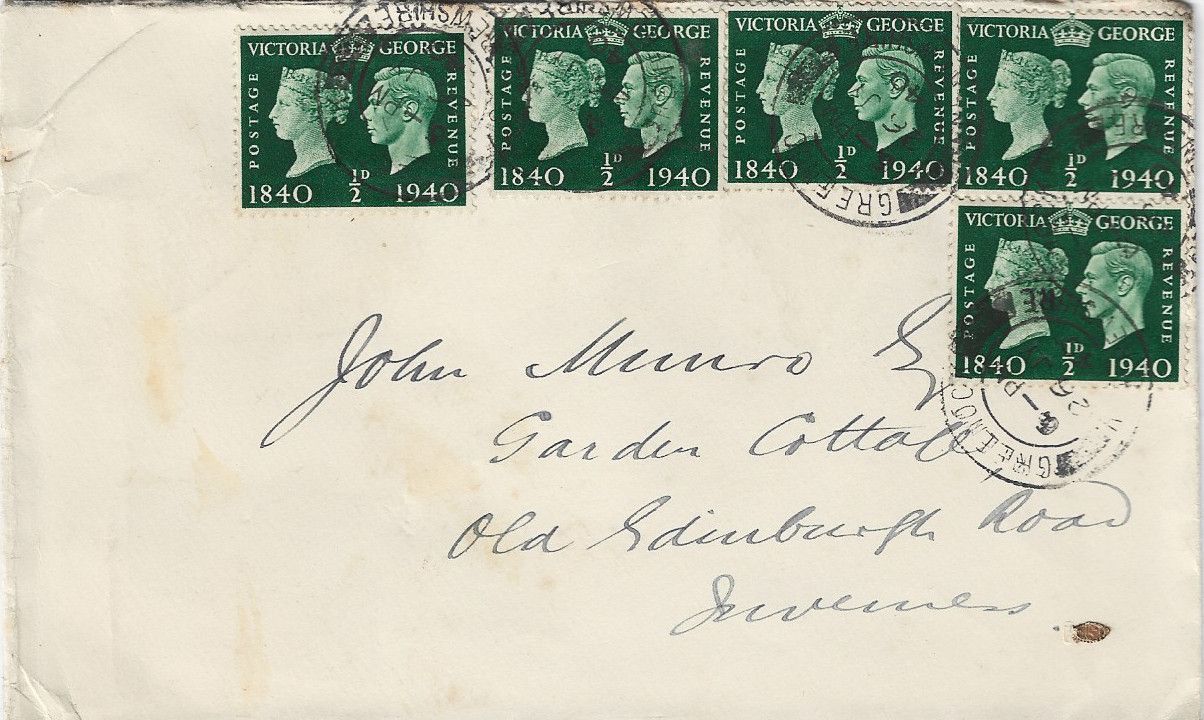 VICTORIA GEORGE
POSTAGE REVENUE
1840 ½D 1940
VICTORIA GEORGE
POSTAGE REVENUE
1840 ½D 1940
VICTORIA GEORGE
POSTAGE REVENUE
1840 ½D 1940
VICTORIA GEORGE
POSTAGE REVENUE
1840 ½D 1940
VICTORIA GEORGE
POSTAGE REVENUE
1840 ½D 1940
GREENOCK
John Munro Esq
Garden Cottage
Old Edinburgh Road
Inverness.